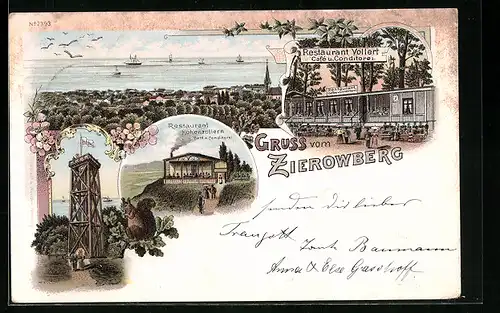 No 2393
Restaurant Vollert
Café u. Conditorei
Restaurant
Hohenzollern
Café u. Conditorei
GRUSS vom
ZIEROWBERG
senden dir lieber
Traugott Baumann
Anna & Else Gasshoff